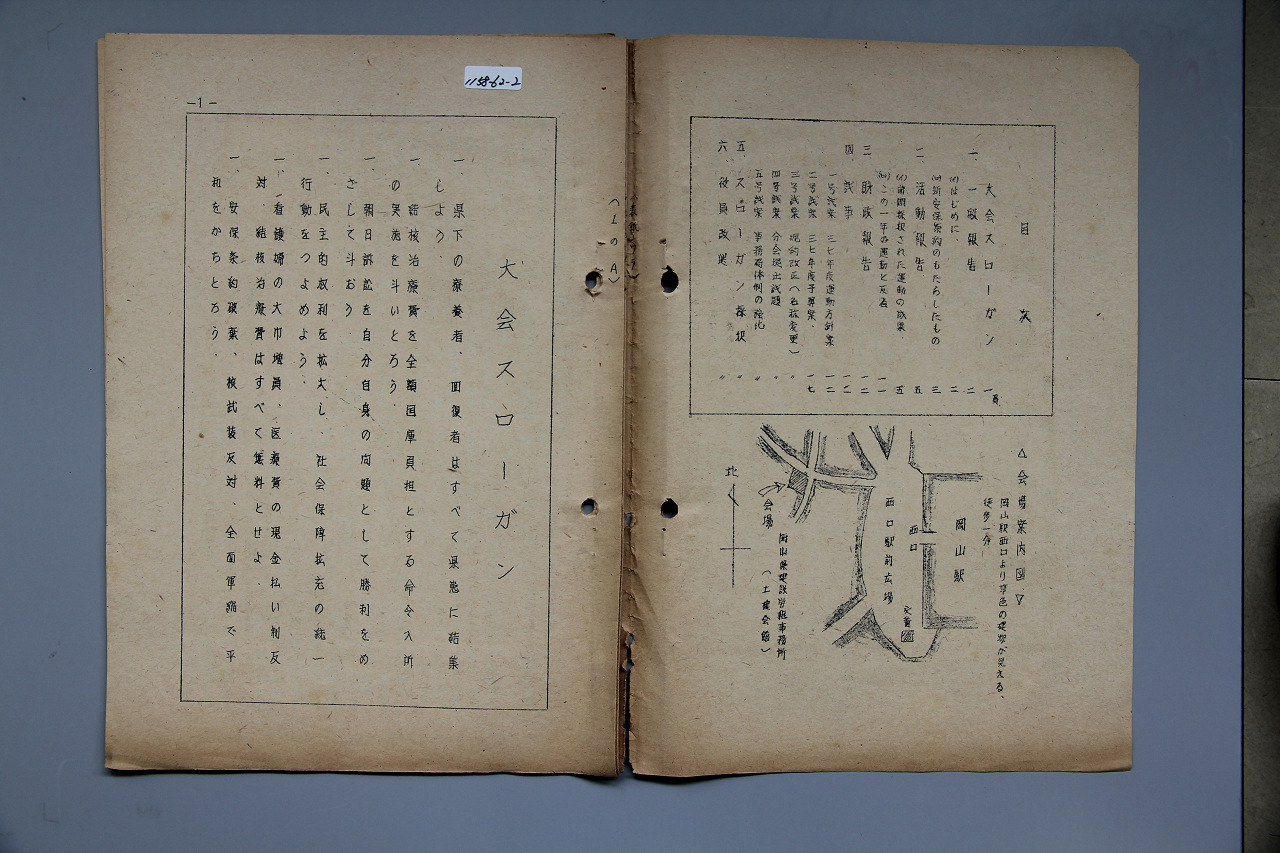 目次
大会スローガン 一頁
一、一般報告 二
(イ)はじめに、 二
(ロ)新安保条約のもたらしたもの 三
二、活動報告 五
(イ)前期採択された運動の成果 五
(ロ)この一年の運動と反省 一一
三 財政報告 一二
四 議事 一二
一号議案 三七年度運動方針案 一二
二号議案 三七年度予算案、 一七
三号議案 規約改正(名称変更) 〃
四号議案 分会提出議題 〃
五号議案 事務局体制の強化 〃
五、スローガン採択 〃
六、役員改選 〃
△会場案内図▽
岡山駅西口より草色の建物が見える、
徒歩一分
岡山駅
西口
西口駅前広場
交番
会場
岡山県建設労組事務所
(土建会館)
北
1158-62-2
(表紙ウラ)
(1のA)
-1-
大会スローガン
一、県下の療養者、回復者はすべて県患に結集
しよう、
一、結核治療費を全額国庫負担とする命令入所
の実施を斗いとろう、
一、朝日訴訟を自分自身の問題として勝利をめ
ざして斗おう、
一、民主的权利を拡大し、社会保障拡充の統一
行動をつよめよう、
一、看護婦の大巾増員、医療費の現金払い制反
対、結核治療費はすべて無料とせよ、
一、安保条約破棄、核武装反対 全面軍縮で平
和をかちとろう、